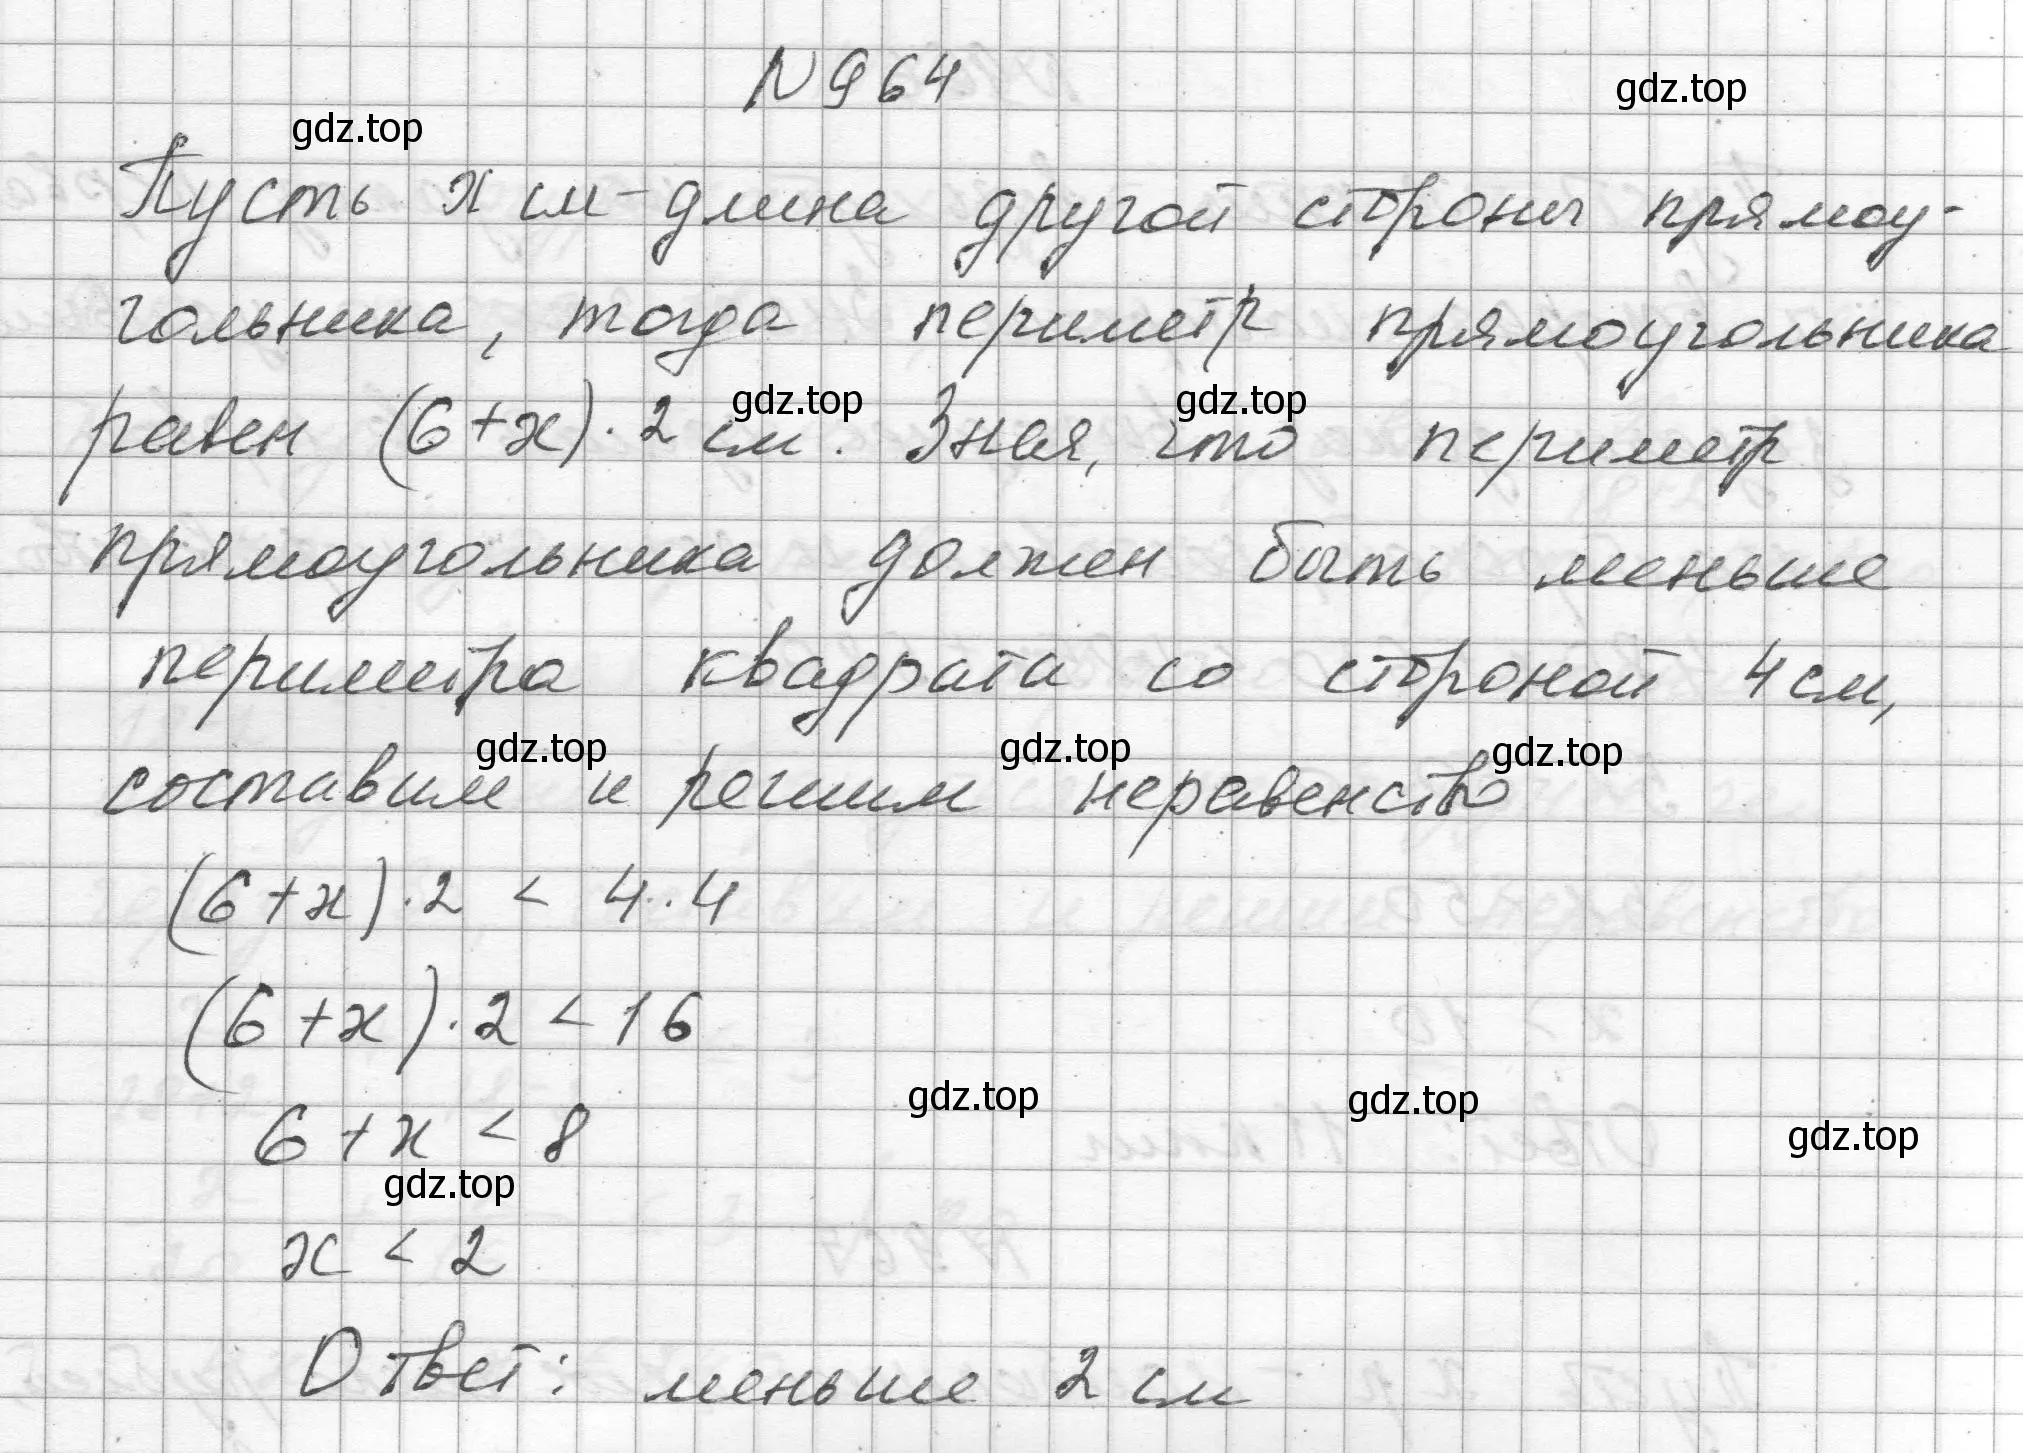 N 964
gdz.top
gdz.top
Пусть x см - длина другой стороны прямоу-
гольника, тогда периметр прямоугольника
gdz.top gdz.top
равен (6+x)·2 см. Зная, что периметр
прямоугольника должен быть меньше
периметра квадрата со стороной 4 см,
gdz.top gdz.top gdz.top
составим и решим неравенство
(6+x)·2 < 4·4
(6+x)·2 < 16
gdz.top gdz.top gdz.top
6+x < 8
gdz.top
x < 2
Ответ: меньше 2 см